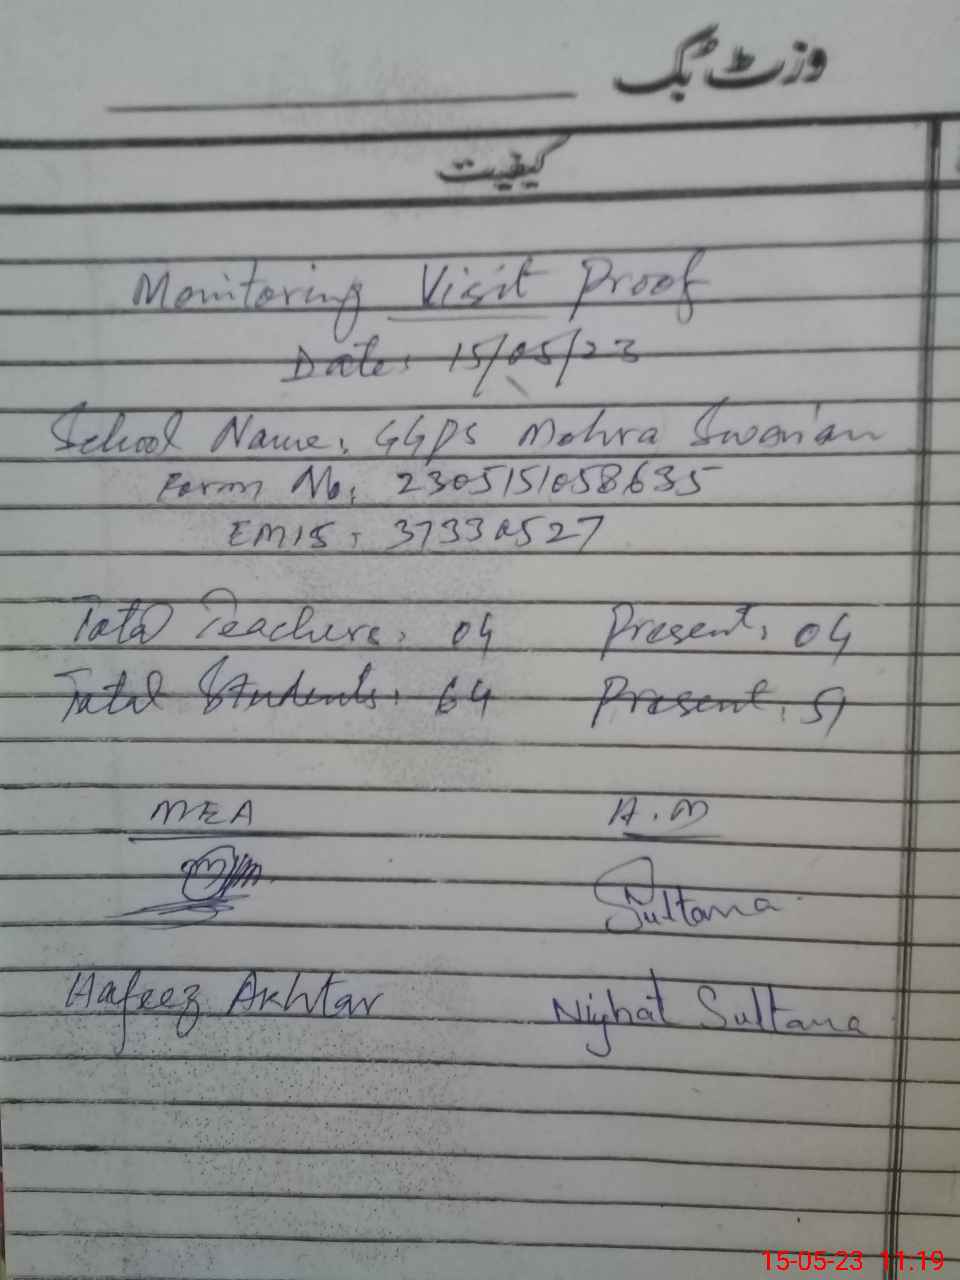 وزٹ بک
کیفیت
Monitoring Visit Proof
Date: 15/05/23
School Name: GGPS Mohra Swanian
Form No: 2305151058635
EMIS: 37330527
Total Teachers: 04 Present: 04
Total Students: 64 Present: 51
MEA A.M
Sultana
Hafeez Akhtar Nighat Sultana
15-05-23 11.19